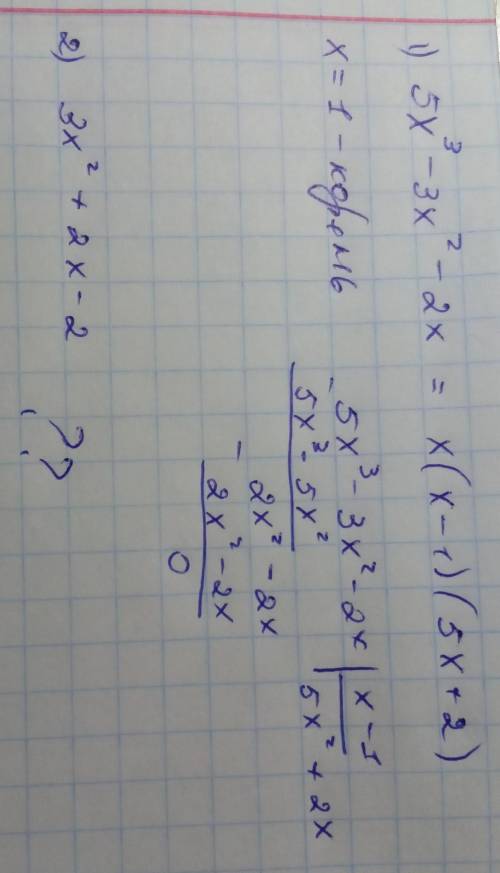 1) 5x³ - 3x² - 2x = x(x-1)(5x+2)
x = 1 - корень
- 5x³ - 3x² - 2x | x - 1
5x³ - 5x² 5x² + 2x
2x² - 2x
- 2x² - 2x
0
2) 3x² + 2x - 2 ??